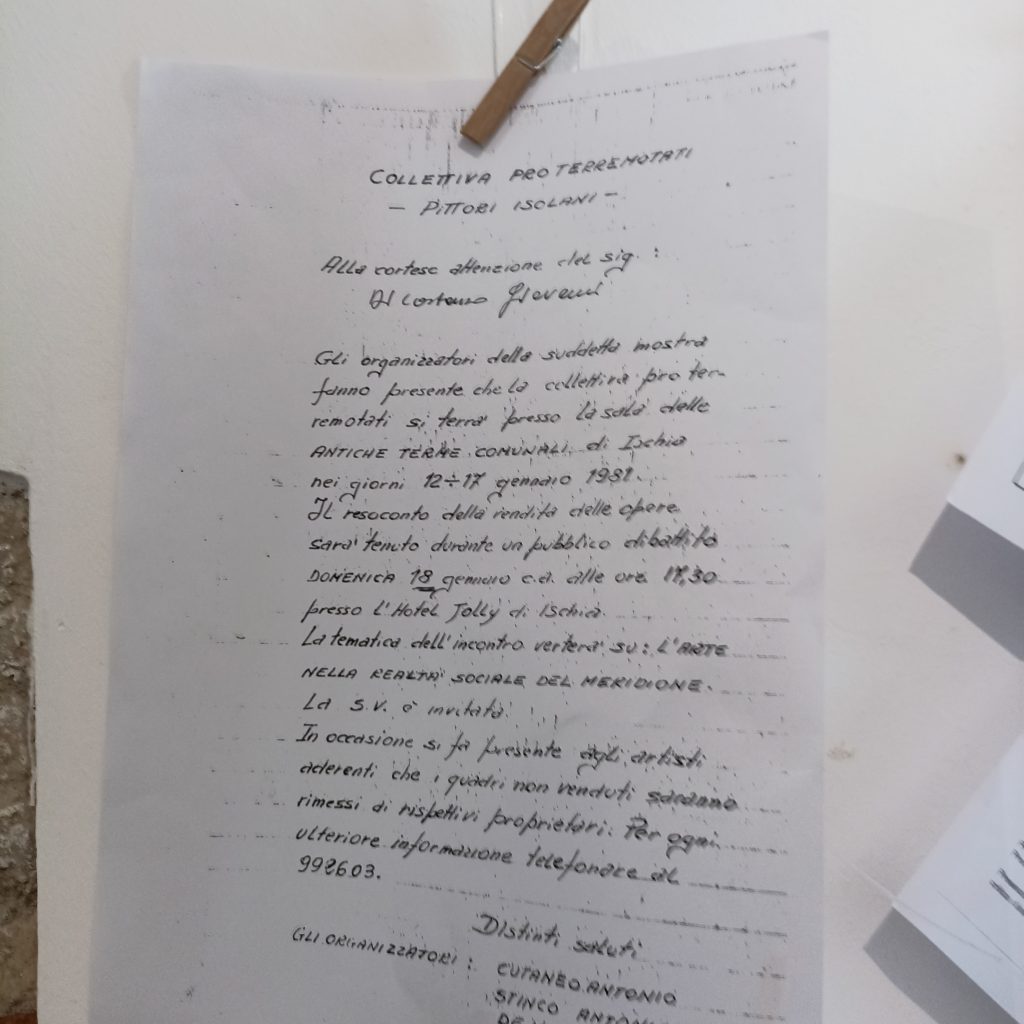 COLLETTIVA PRO TERREMOTATI
- PITTORI ISOLANI -
Alla cortese attenzione del sig. :
Di Costanzo Giovanni
Gli organizzatori della suddetta mostra
fanno presente che la collettiva pro ter-
remotati si terrà presso la sala delle
ANTICHE TERME COMUNALI di Ischia
nei giorni 12÷17 gennaio 1981.
Il resoconto della vendita delle opere
sarà tenuto durante un pubblico dibattito
DOMENICA 18 gennaio c.a. alle ore 17,30
presso l'Hotel Jolly di Ischia.
La tematica dell'incontro verterà su: L'ARTE
NELLA REALTÀ SOCIALE DEL MERIDIONE.
La S.V. è invitata.
In occasione si fa presente agli artisti
aderenti che i quadri non venduti saranno
rimessi di rispettivi proprietari. Per ogni
ulteriore informazione telefonare al
992603.
Distinti saluti
GLI ORGANIZZATORI : CUTANEO ANTONIO
STINCO